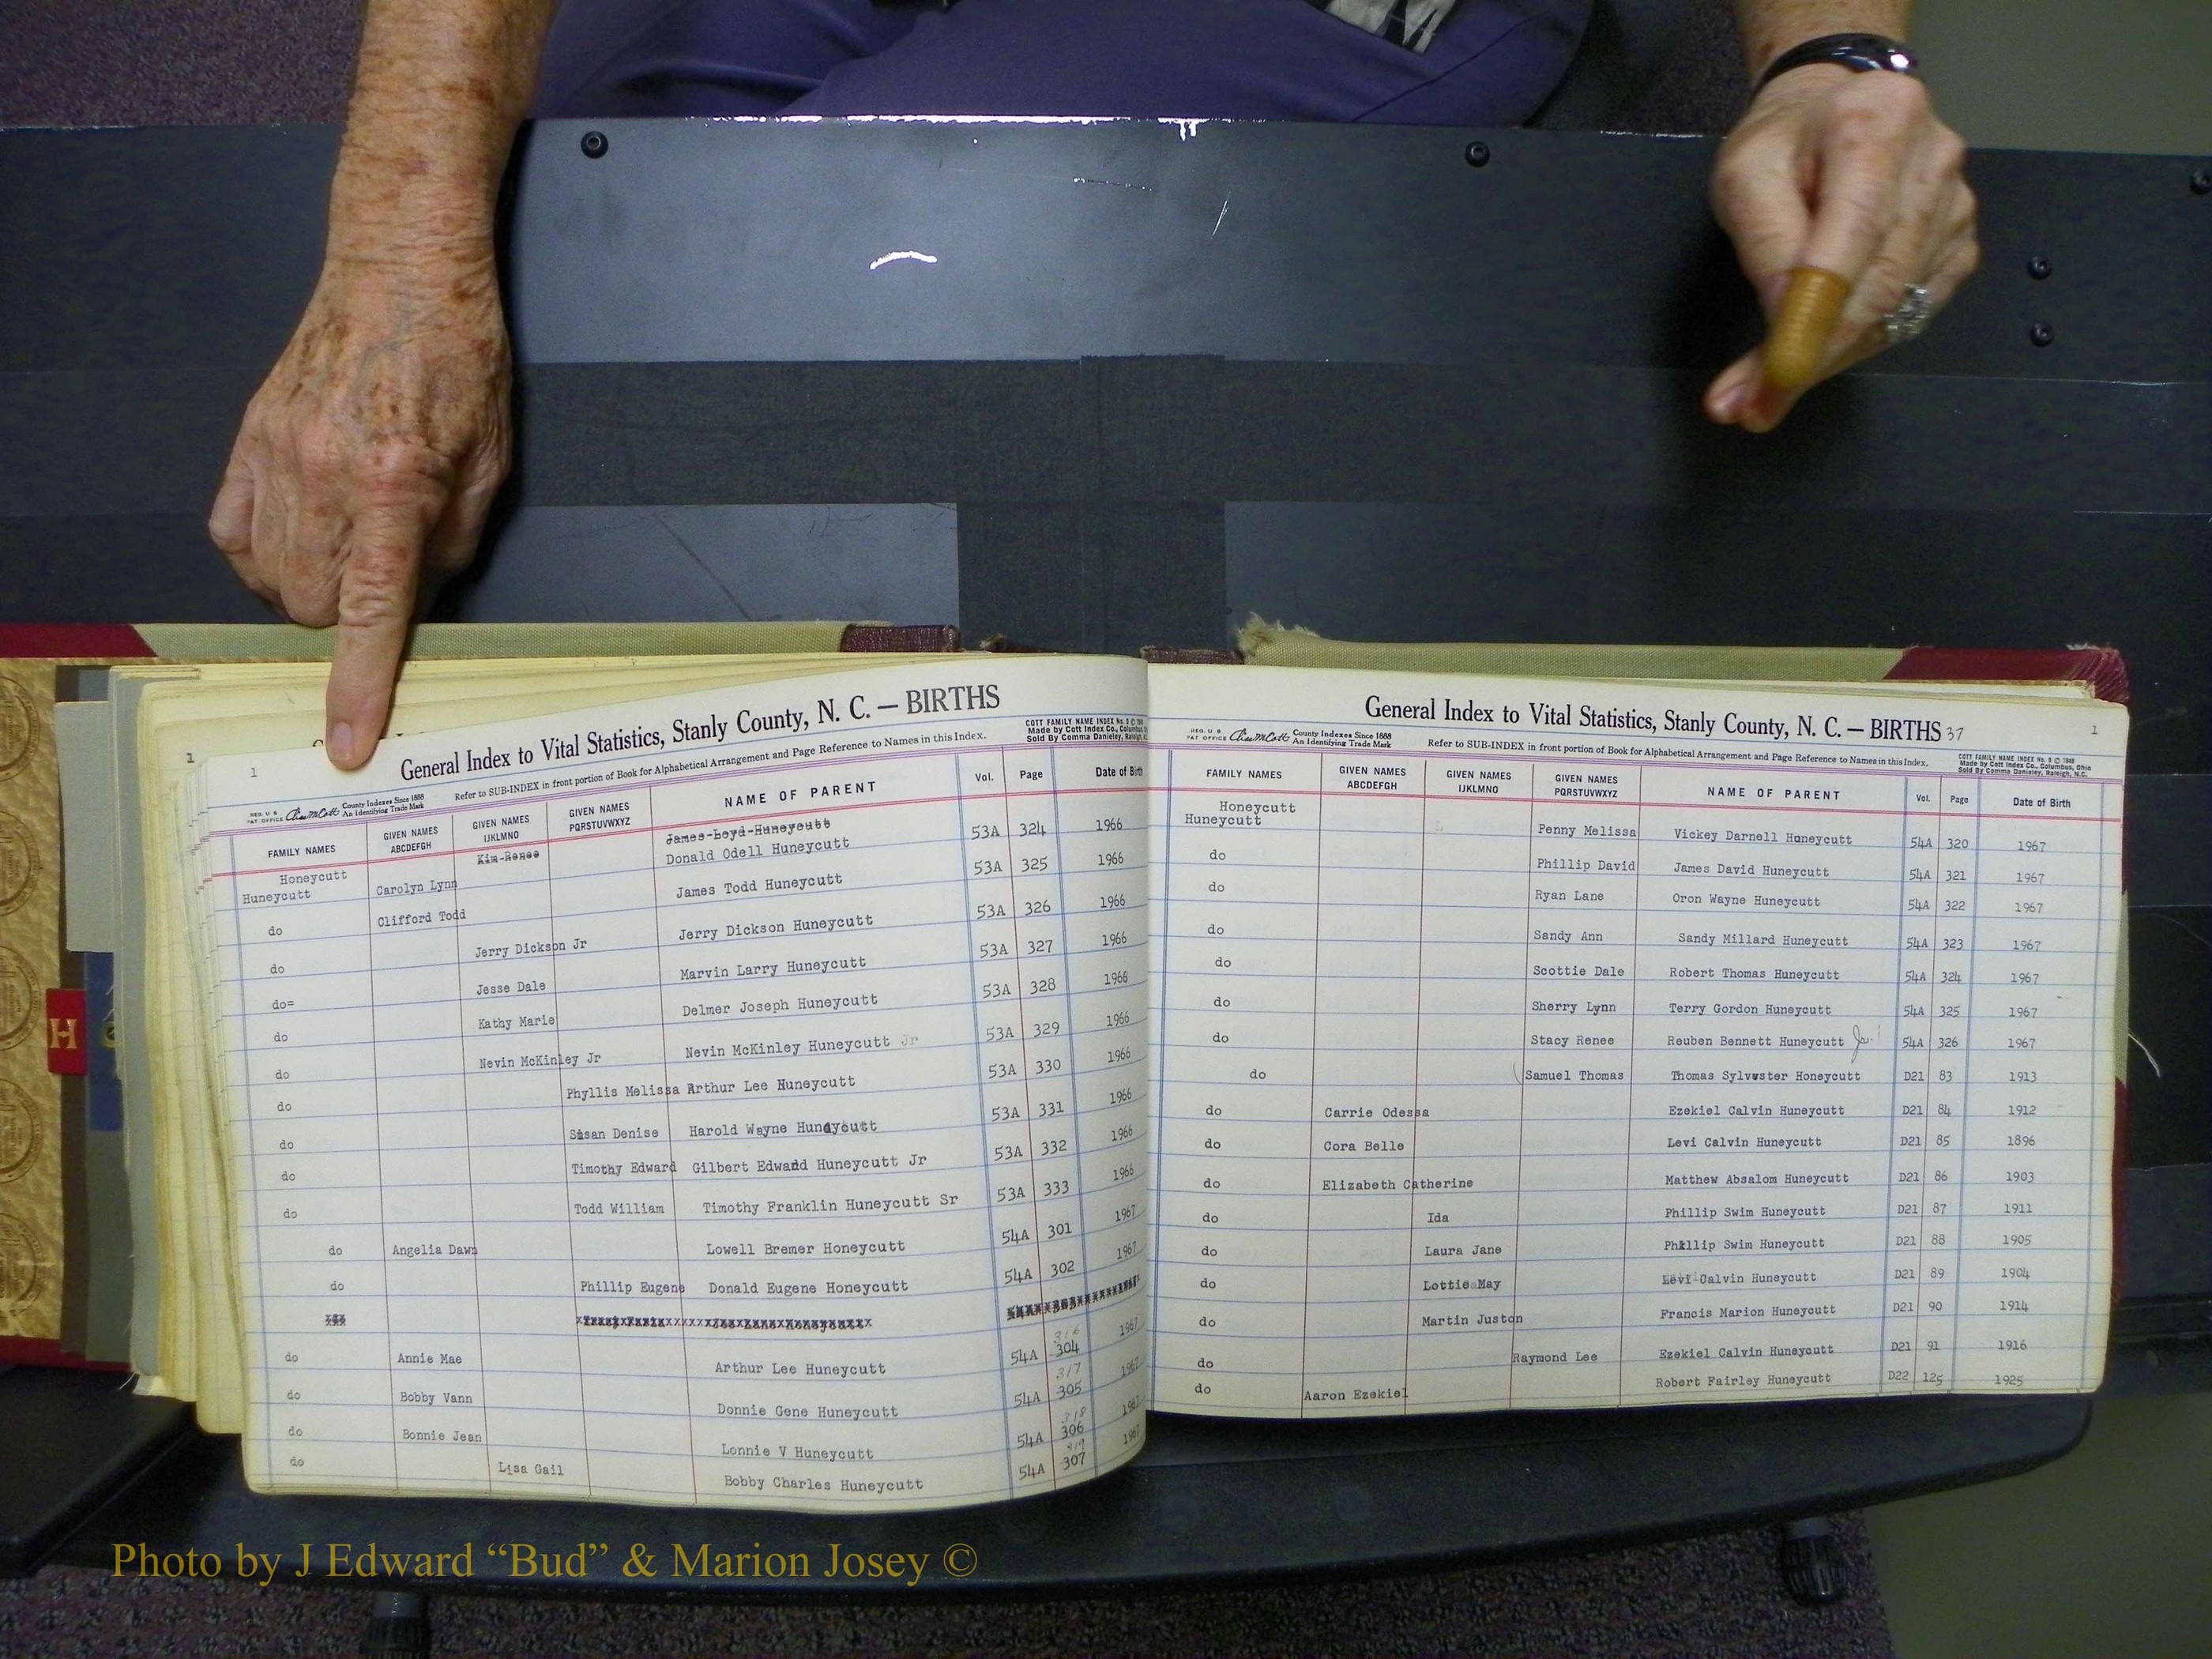 1
General Index to Vital Statistics, Stanly County, N. C. — BIRTHS
REG. U S PAT OFFICE County Indexes Since 1888 An Identifying Trade Mark
Refer to SUB-INDEX in front portion of Book for Alphabetical Arrangement and Page Reference to Names in this Index.
COTT FAMILY NAME INDEX No.
Made by Cott Index Co., Columbus,
Sold By Comma Danieley, Raleigh,
FAMILY NAMES GIVEN NAMES ABCDEFGH GIVEN NAMES IJKLMNO GIVEN NAMES PQRSTUVWXYZ NAME OF PARENT Vol. Page Date of Birth
Kim-Renee James-Loyd-Huneycutt
Honeycutt
Huneycutt Carolyn Lynn Donald Odell Huneycutt 53A 324 1966
do Clifford Todd James Todd Huneycutt 53A 325 1966
do Jerry Dickson Jr Jerry Dickson Huneycutt 53A 326 1966
do= Jesse Dale Marvin Larry Huneycutt 53A 327 1966
do Kathy Marie Delmer Joseph Huneycutt 53A 328 1966
do Nevin McKinley Jr Nevin McKinley Huneycutt Jr 53A 329 1966
do Phyllis Melissa Arthur Lee Huneycutt 53A 330 1966
do Susan Denise Harold Wayne Huneycutt 53A 331 1966
do Timothy Edward Gilbert Edward Huneycutt Jr 53A 332 1966
do Todd William Timothy Franklin Huneycutt Sr 53A 333 1966
do Angelia Dawn Lowell Bremer Honeycutt 54A 301 1967
do Phillip Eugene Donald Eugene Honeycutt 54A 302 1967
do Annie Mae Arthur Lee Huneycutt 54A 316 304 1967
do Bobby Vann Donnie Gene Huneycutt 54A 317 305 1967
do Bonnie Jean Lonnie V Huneycutt 54A 318 306 1967
do Lisa Gail Bobby Charles Huneycutt 54A 319 307 1967
General Index to Vital Statistics, Stanly County, N. C. — BIRTHS 37
1
REG. U S PAT OFFICE County Indexes Since 1888 An Identifying Trade Mark
Refer to SUB-INDEX in front portion of Book for Alphabetical Arrangement and Page Reference to Names in this Index.
COTT FAMILY NAME INDEX No.
Made by Cott Index Co., Columbus, Ohio
Sold By Comma Danieley, Raleigh, N.C.
FAMILY NAMES GIVEN NAMES ABCDEFGH GIVEN NAMES IJKLMNO GIVEN NAMES PQRSTUVWXYZ NAME OF PARENT Vol. Page Date of Birth
Honeycutt
Huneycutt Penny Melissa Vickey Darnell Huneycutt 54A 320 1967
do Phillip David James David Huneycutt 54A 321 1967
do Ryan Lane Oron Wayne Huneycutt 54A 322 1967
do Sandy Ann Sandy Millard Huneycutt 54A 323 1967
do Scottie Dale Robert Thomas Huneycutt 54A 324 1967
do Sherry Lynn Terry Gordon Huneycutt 54A 325 1967
do Stacy Renee Reuben Bennett Huneycutt Jr. 54A 326 1967
do Samuel Thomas Thomas Sylvester Honeycutt D21 83 1913
do Carrie Odessa Ezekiel Calvin Huneycutt D21 84 1912
do Cora Belle Levi Calvin Huneycutt D21 85 1896
do Elizabeth Catherine Matthew Absalom Huneycutt D21 86 1903
do Ida Phillip Swim Huneycutt D21 87 1911
do Laura Jane Phillip Swim Huneycutt D21 88 1905
do Lottie May Levi Calvin Huneycutt D21 89 1904
do Martin Juston Francis Marion Huneycutt D21 90 1914
do Raymond Lee Ezekiel Calvin Huneycutt D21 91 1916
do Aaron Ezekiel Robert Fairley Huneycutt D22 125 1925
H
Photo by J Edward “Bud” & Marion Josey ©